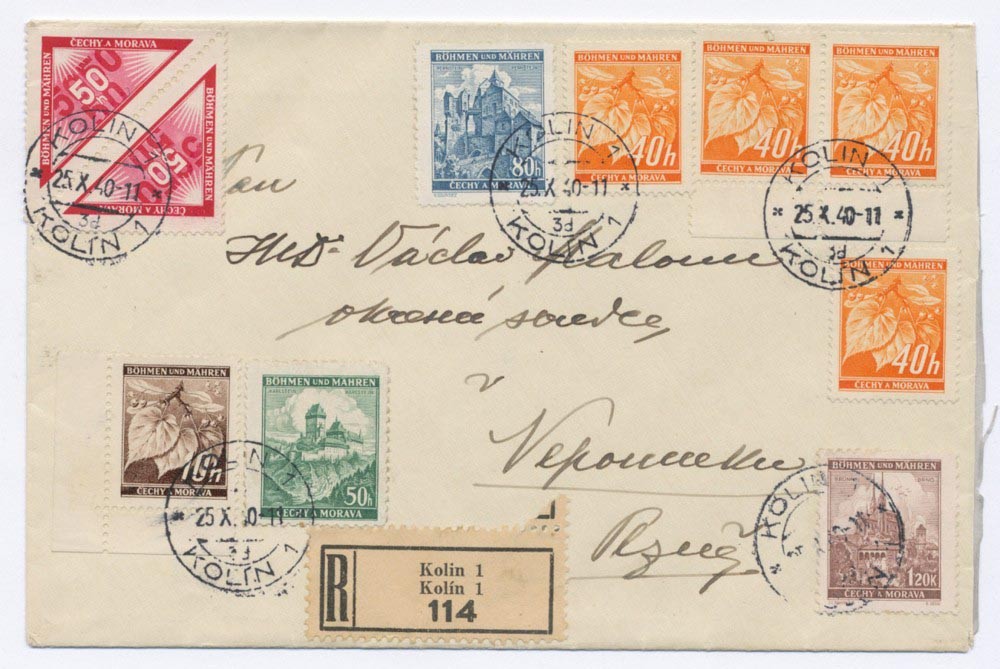 ČECHY A MORAVA
BÖHMEN UND MÄHREN
50 h
50
BÖHMEN UND MÄHREN
ČECHY A MORAVA
KOLIN 1
25.X.40-11
3d
KOLÍN 1
BÖHMEN UND MÄHREN
80h
ČECHY A MORAVA
BÖHMEN UND MÄHREN
40h
ČECHY A MORAVA
BÖHMEN UND MÄHREN
40h
ČECHY A MORAVA
BÖHMEN UND MÄHREN
40h
ČECHY A MORAVA
KOLIN 1
25.X.40-11
3d
KOLÍN 1
KOLIN 1
25.X.40-11
3d
KOLÍN 1
Pan
JUDr Václav
okresní soudce
v
Nepomuku
Plzně
BÖHMEN UND MÄHREN
40h
ČECHY A MORAVA
BÖHMEN UND MÄHREN
10h
ČECHY A MORAVA
BÖHMEN UND MÄHREN
KARLSTEIN
50h
ČECHY A MORAVA
KOLIN 1
25.X.40-11
3d
KOLÍN 1
BÖHMEN UND MÄHREN
BRÜNN
BRNO
1.20K
ČECHY A MORAVA
KOLIN
R
Kolin 1
Kolín 1
114